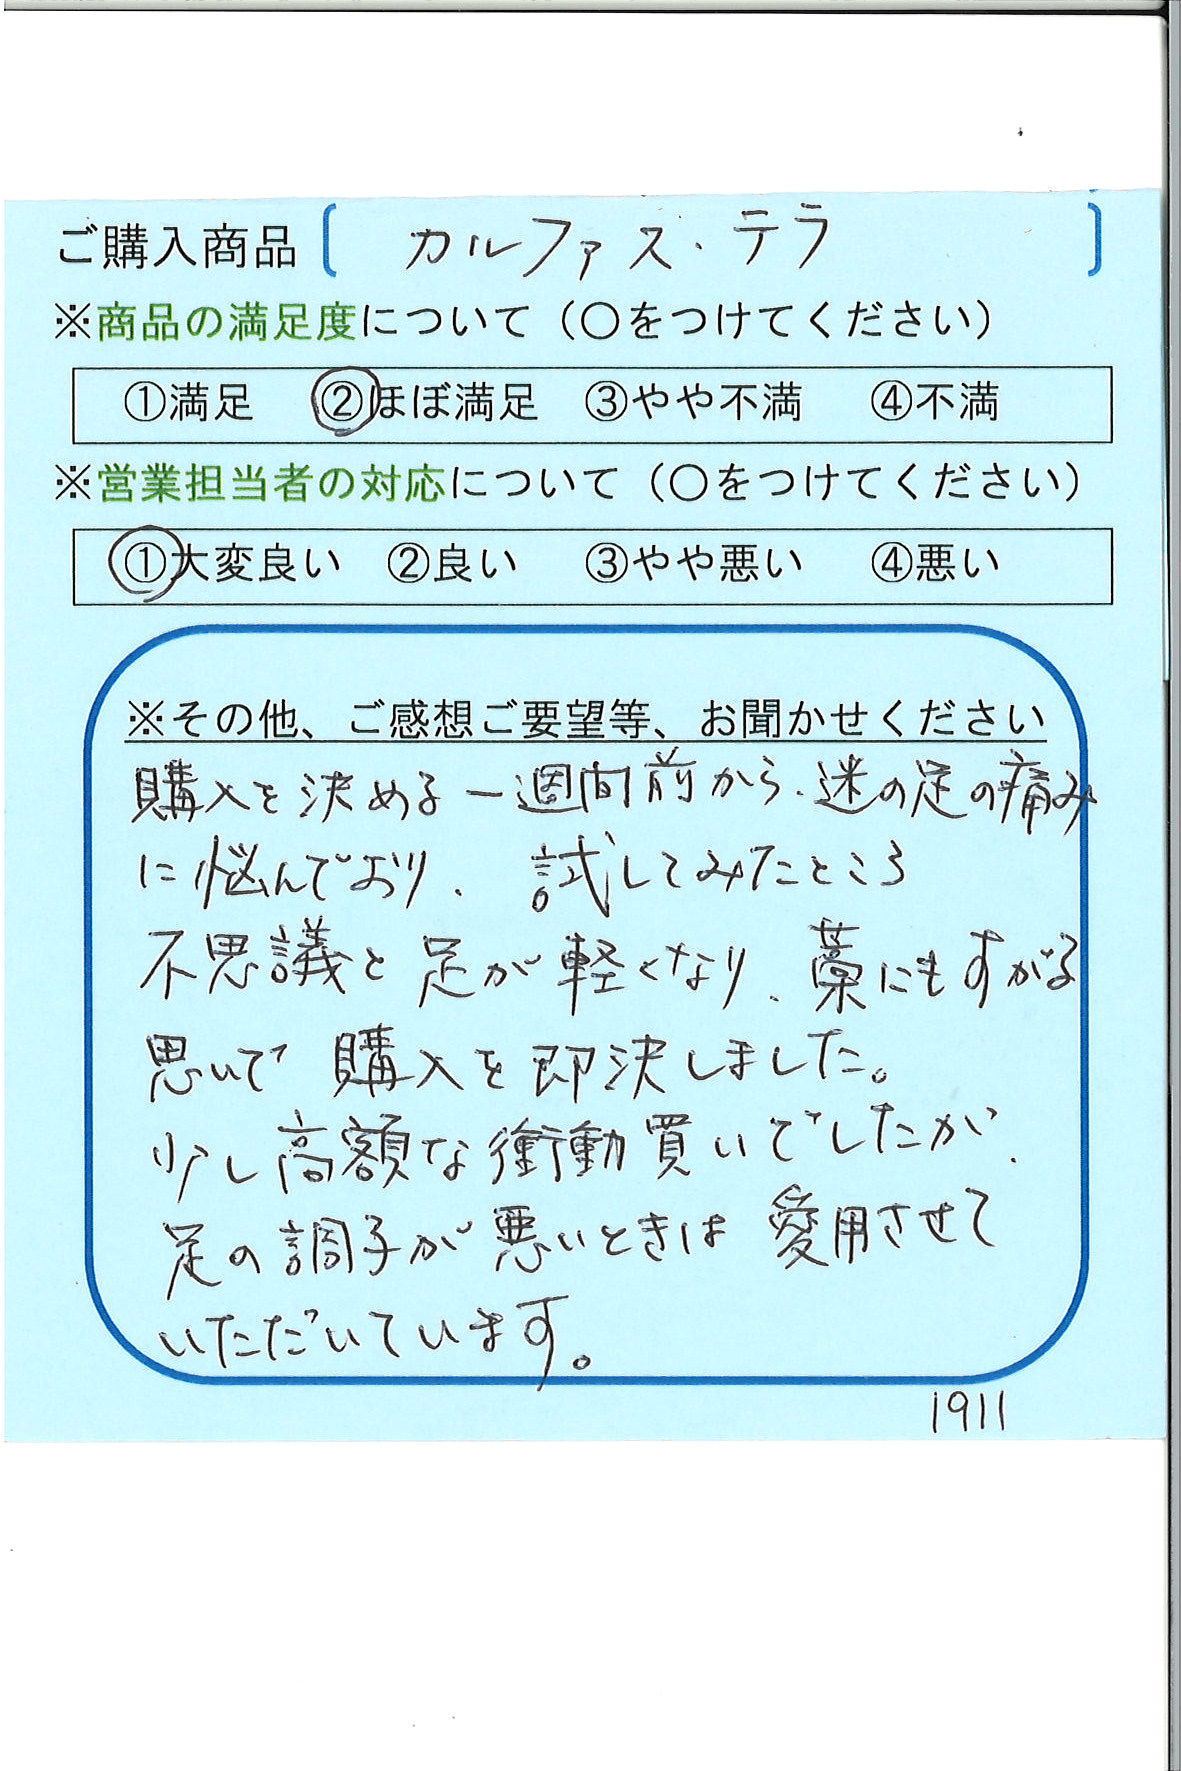 ご購入商品 [ カルファス・テラ ]
※商品の満足度について（○をつけてください）
①満足 ②ほぼ満足 ③やや不満 ④不満
※営業担当者の対応について（○をつけてください）
①大変良い ②良い ③やや悪い ④悪い
※その他、ご感想ご要望等、お聞かせください
購入を決める一週間前から、迷の足の痛み
に悩んでおり、試してみたところ
不思議と足が軽くなり、藁にもすがる
思いで購入を即決しました。
少し高額な衝動買いでしたが、
足の調子が悪いときは愛用させて
いただいています。
1911